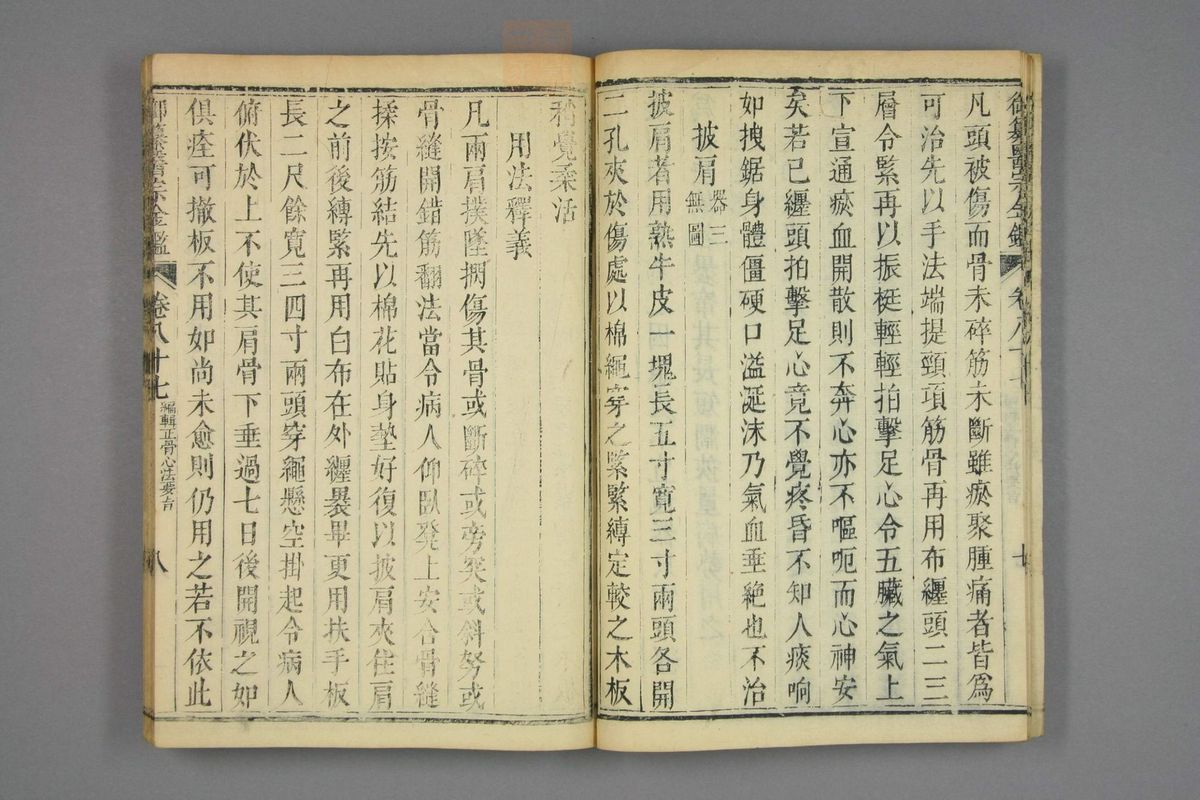 御纂醫宗金鑑 卷八十七 七
凡頭被傷而骨未碎筋未斷雖瘀聚腫痛者皆爲
可治先以手法端提頸項筋骨再用布纏頭二三
層令緊再以振梃輕輕拍擊足心令五臟之氣上
下宣通瘀血開散則不奔心亦不嘔呃而心神安
矣若已纏頭拍擊足心竟不覺疼昏不知人痰响
如拽鋸身體僵硬口溢涎沫乃氣血垂絕也不治
披肩 器三無圖
披肩者用熟牛皮一塊長五寸寬三寸兩頭各開
二孔夾於傷處以棉繩穿之緊緊縛定較之木板
稍覺柔活
用法釋義
凡兩肩撲墜捫傷其骨或斷碎或旁突或斜努或
骨縫開錯筋翻法當令病人仰臥凳上安合骨縫
揉按筋結先以棉花貼身墊好復以披肩夾住肩
之前後縛緊再用白布在外纏裹畢更用扶手板
長二尺餘寬三四寸兩頭穿繩懸空掛起令病人
俯伏於上不使其肩骨下垂過七日後開視之如
俱痊可撤板不用如尚未愈則仍用之若不依此
御纂醫宗金鑑 卷八十七 編輯正骨心法要旨 八